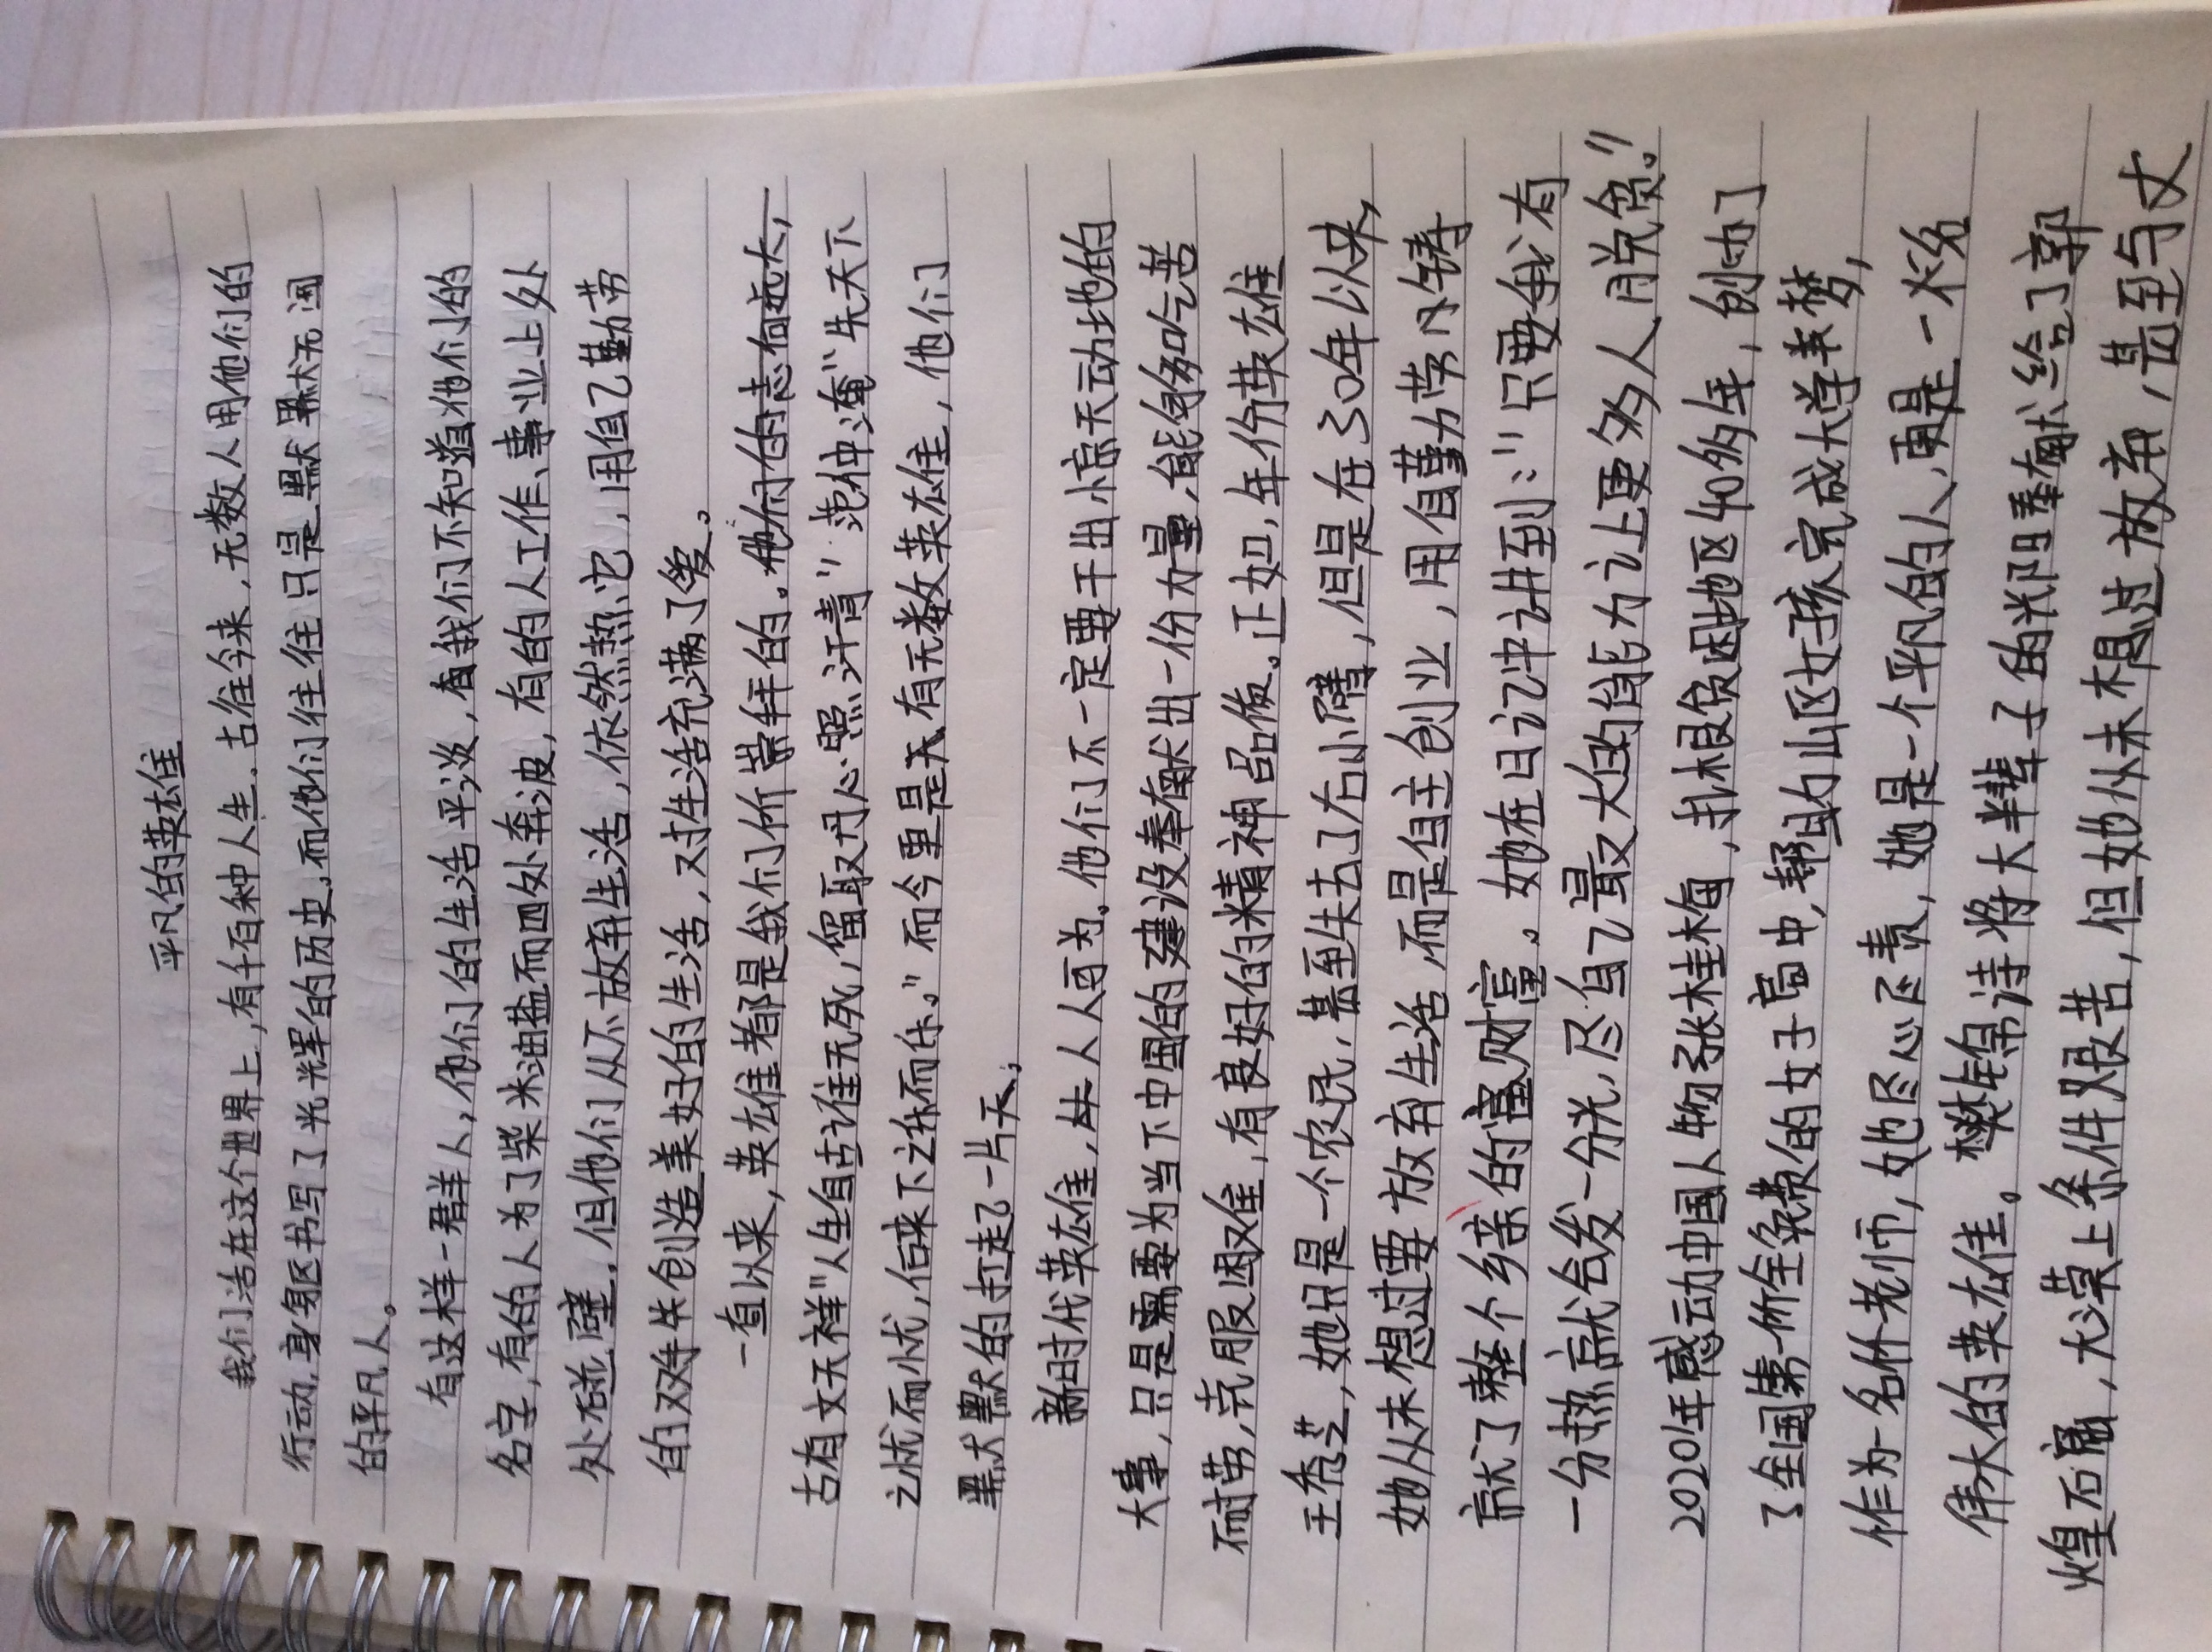 平凡的英雄
我们活在这个世界上,有千百种人生。古往今来,无数人用他们的
行动,身躯书写了光辉的历史,而他们往往只是默默无闻
的平凡人。
有这样一群人,他们的生活平淡,有我们不知道他们的
名字,有的人为了柴米油盐而四处奔波,有的人工作、事业上处
处碰壁,但他们从不放弃生活,依然热它,用自己勤劳
的双手创造美好的生活,对生活充满了爱。
一直以来,英雄都是我们价崇拜的。
古有文天祥"人生自古谁无死,留取丹心照汗青"范仲淹"先天下
之忧而忧,后来下之乐而乐。"而今更是有无数英雄,他们
默默的打起了一片天,
新时代英雄,人人可为。他们不一定要干出惊天动地的
大事,只是需要为当下中国的建设奉献出一份力量,能够吃苦
耐劳,克服困难,有良好的精神品质。正如,年份英雄
王秀芝,她只是一个农民,甚至失去了右小臂,但是在30年以来,
她从未想过要放弃生活,而是自主创业,用自勤劳内铸
就了整个乡亲的富财富。她在日记中讲到:"只要我有
一分热就会发一分光,尽自己最大的能力让更多人脱贫。"
2020年感动中国人物张桂梅,扎根贫困地区40多年,创办了
了全国第一所全免费的女子高中,帮助山区女孩完成大学梦,
作为一名价老师,她尽心尽责,她是一个平凡的人,更是一名
伟大的英雄。樊锦诗将大半辈子的光阴奉献给了敦
煌石窟,大漠上条件艰苦,但她从未想过放弃,甚至与丈